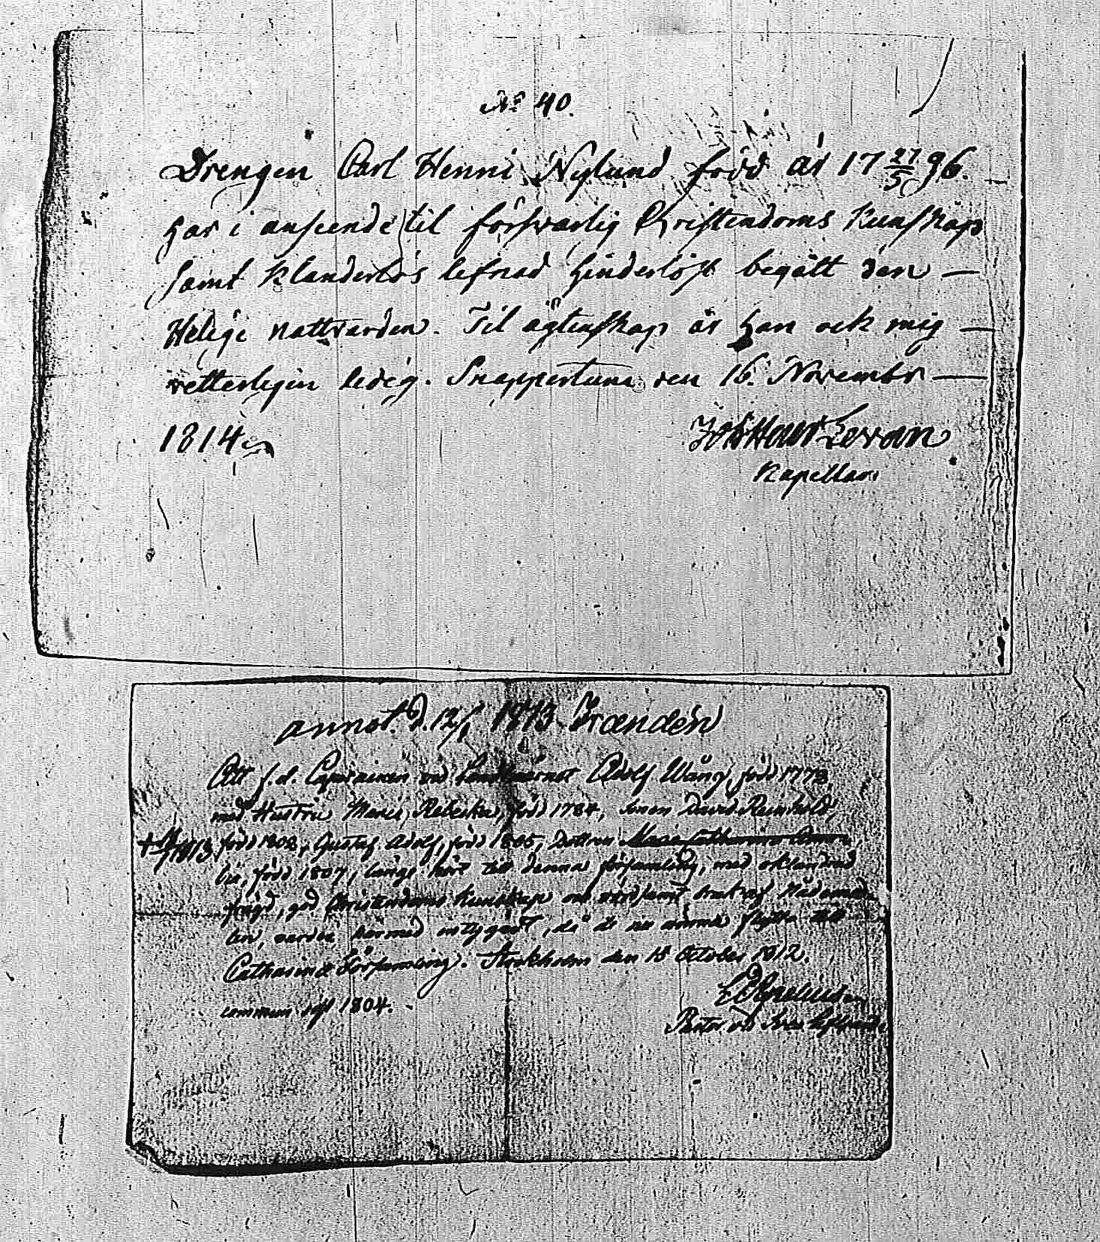 No 40.
Drengen Carl Henric Nylund född år 17 27/5 96.
har i anseende til försvarlig Christendoms Kunskap
samt Klanderlös lefnad hinderlöst begått den —
Helige nattvarden. Til ägtenskap är han ock mig —
vetterligen ledig. Snappertuna den 16. Novembr —
1814
Kapellan
annot. d. 12/1 1813
Att f. d. Adolf född 1773
med Hustru Maria Rebecka, född 1784, Sonen David Reinhold,
född 1803, Gustaf Adolf, född 1805, Dottren
född 1807, hört till denna församling, med oklandrad
god Christendoms Kunskap
varder härmed intygadt, då de nu ämna flytta till
Catharinæ Församling. Stockholm den 15 October 1812.
1804.
Pastor vid